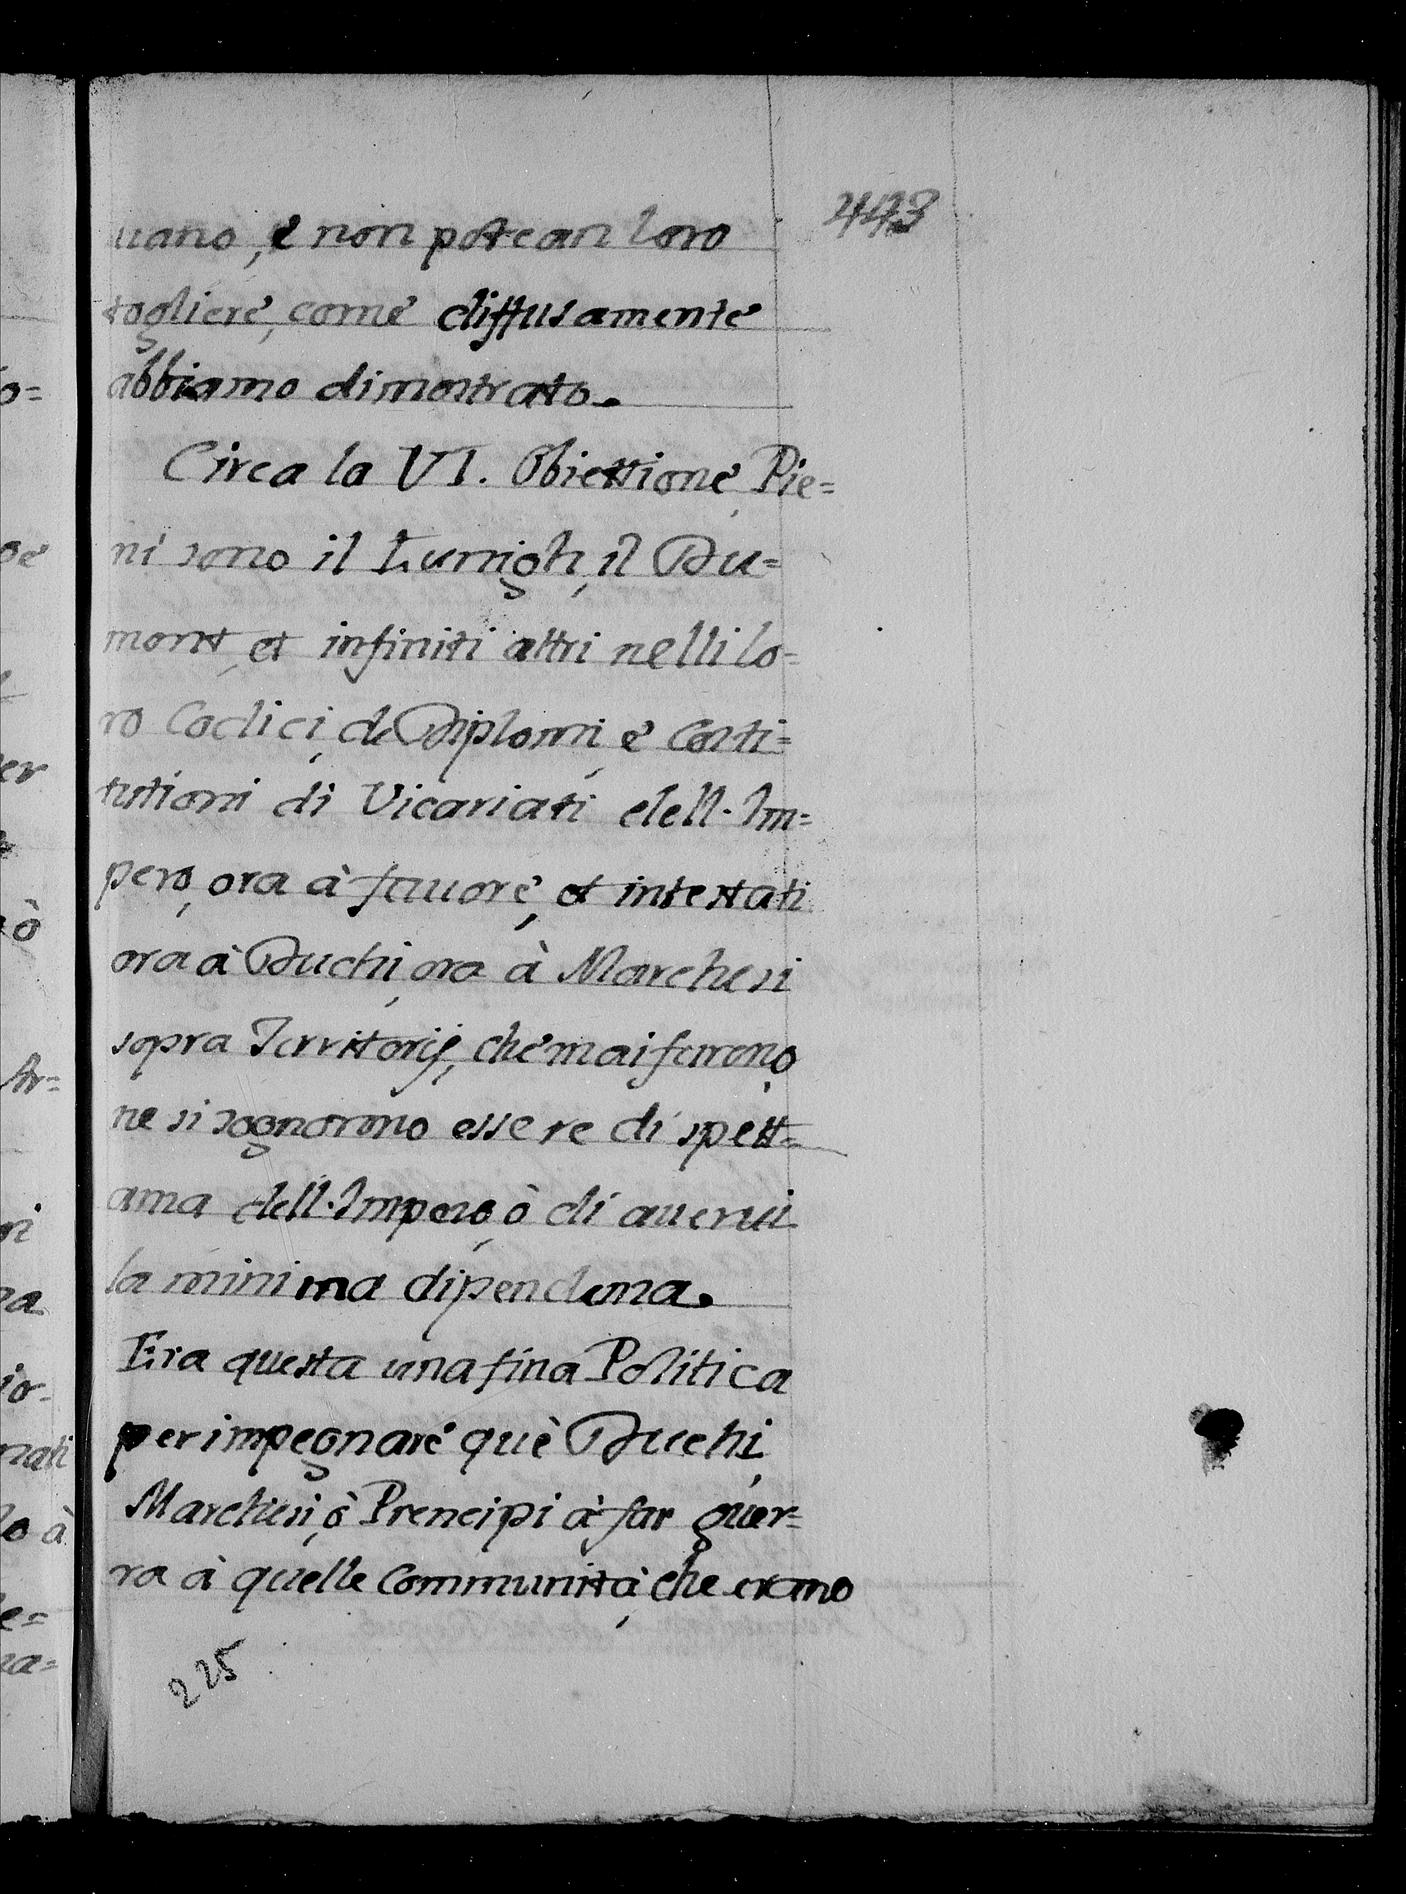 443
uano, è non potean loro
togliere, come diffusamente
abbiamo dimostrato.
Circa la VI. Obiettione, Pie=
ni sono il Lunigh, il Du=
mont, et infiniti altri nelli lo=
ro Codici, de Diplomi, e Costi=
tutioni di Vicariati dell. Im=
pero, ora à fauore, et intestati
ora à Duchi, ora à Marchesi
sopra Territorij, che mai furono,
ne si sognorono essere di spett=
anza dell. Impero, ò di auerui
la minima dipendenza.
Era questa una fina Politica
per impegnare què Duchi,
Marchesi, ò Prencipi à far guer=
ra à quelle Communità, che erano
225